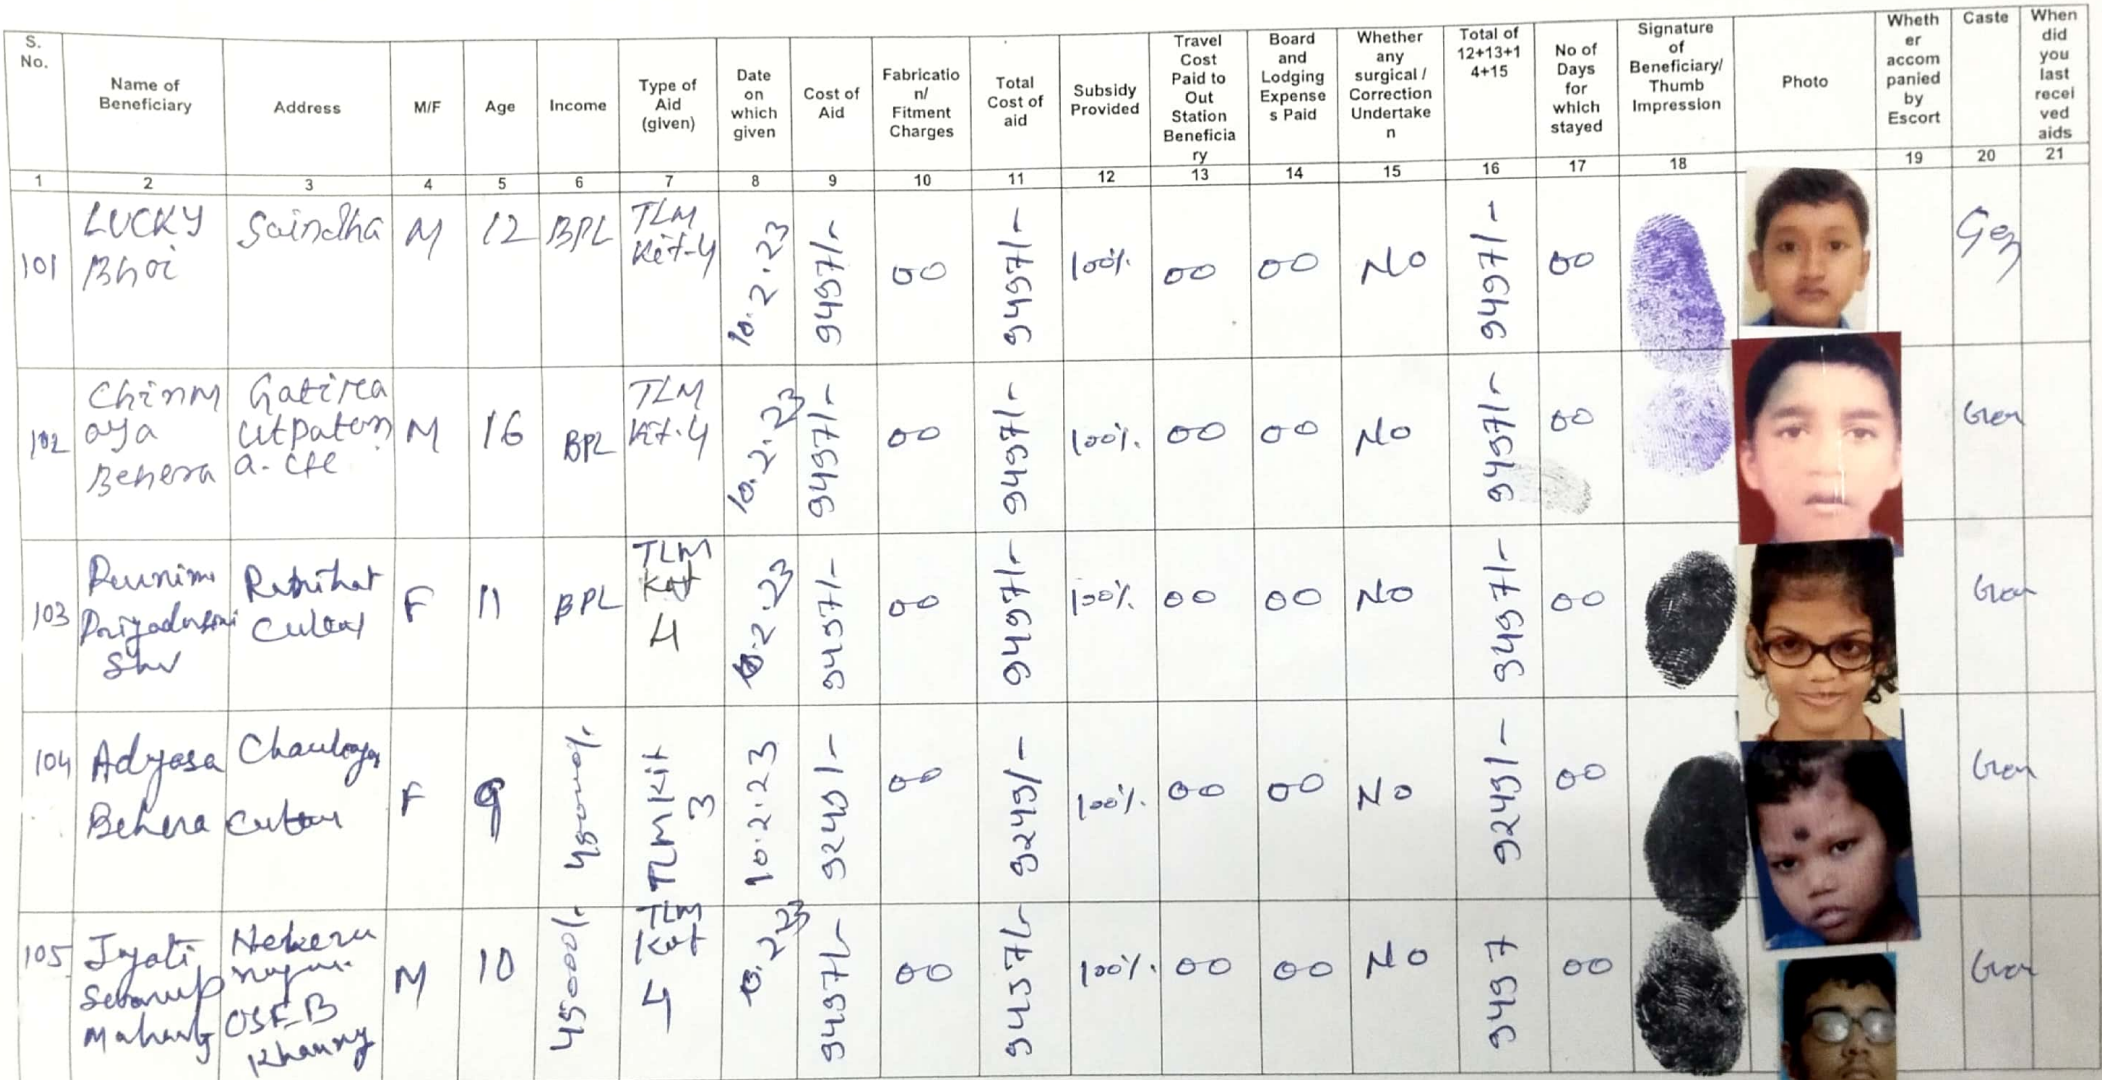 S. No. | Name of Beneficiary | Address | M/F | Age | Income | Type of Aid (given) | Date on which given | Cost of Aid | Fabricatio n/ Fitment Charges | Total Cost of aid | Subsidy Provided | Travel Cost Paid to Out Station Beneficia ry | Board and Lodging Expense s Paid | Whether any surgical / Correction Undertake n | Total of 12+13+1 4+15 | No of Days for which stayed | Signature of Beneficiary/ Thumb Impression | Photo | Wheth er accom panied by Escort | Caste | When did you last recei ved aids
1 | 2 | 3 | 4 | 5 | 6 | 7 | 8 | 9 | 10 | 11 | 12 | 13 | 14 | 15 | 16 | 17 | 18 | 19 | 20 | 21
101 | LUCKY Bhoi | Saindha | M | 12 | BPL | TLM Kit-4 | 10.2.23 | 9497/- | 00 | 9497/- | 100% | 00 | 00 | No | 9497/- | 00 | Gen
102 | Chinm aya Behera | M | 16 | BPL | TLM Kit.4 | 10.2.23 | 9497/- | 00 | 9497/- | 100% | 00 | 00 | No | 9497/- | 00 | Gen
103 | Priyadarsini | F | 11 | BPL | TLM Kit 4 | 10.2.23 | 9497/- | 00 | 9497/- | 100% | 00 | 00 | No | 9497/- | 00 | Gen
104 | Adyasa Behera | F | 9 | TLM Kit 3 | 10.2.23 | 9249/- | 00 | 9249/- | 100% | 00 | 00 | No | 9249/- | 00 | Gen
105 | Jyoti | M | 10 | 45000/- | TLM Kit 4 | 10.2.23 | 9497/- | 00 | 9497/- | 100% | 00 | 00 | No | 9497 | 00 | Gen